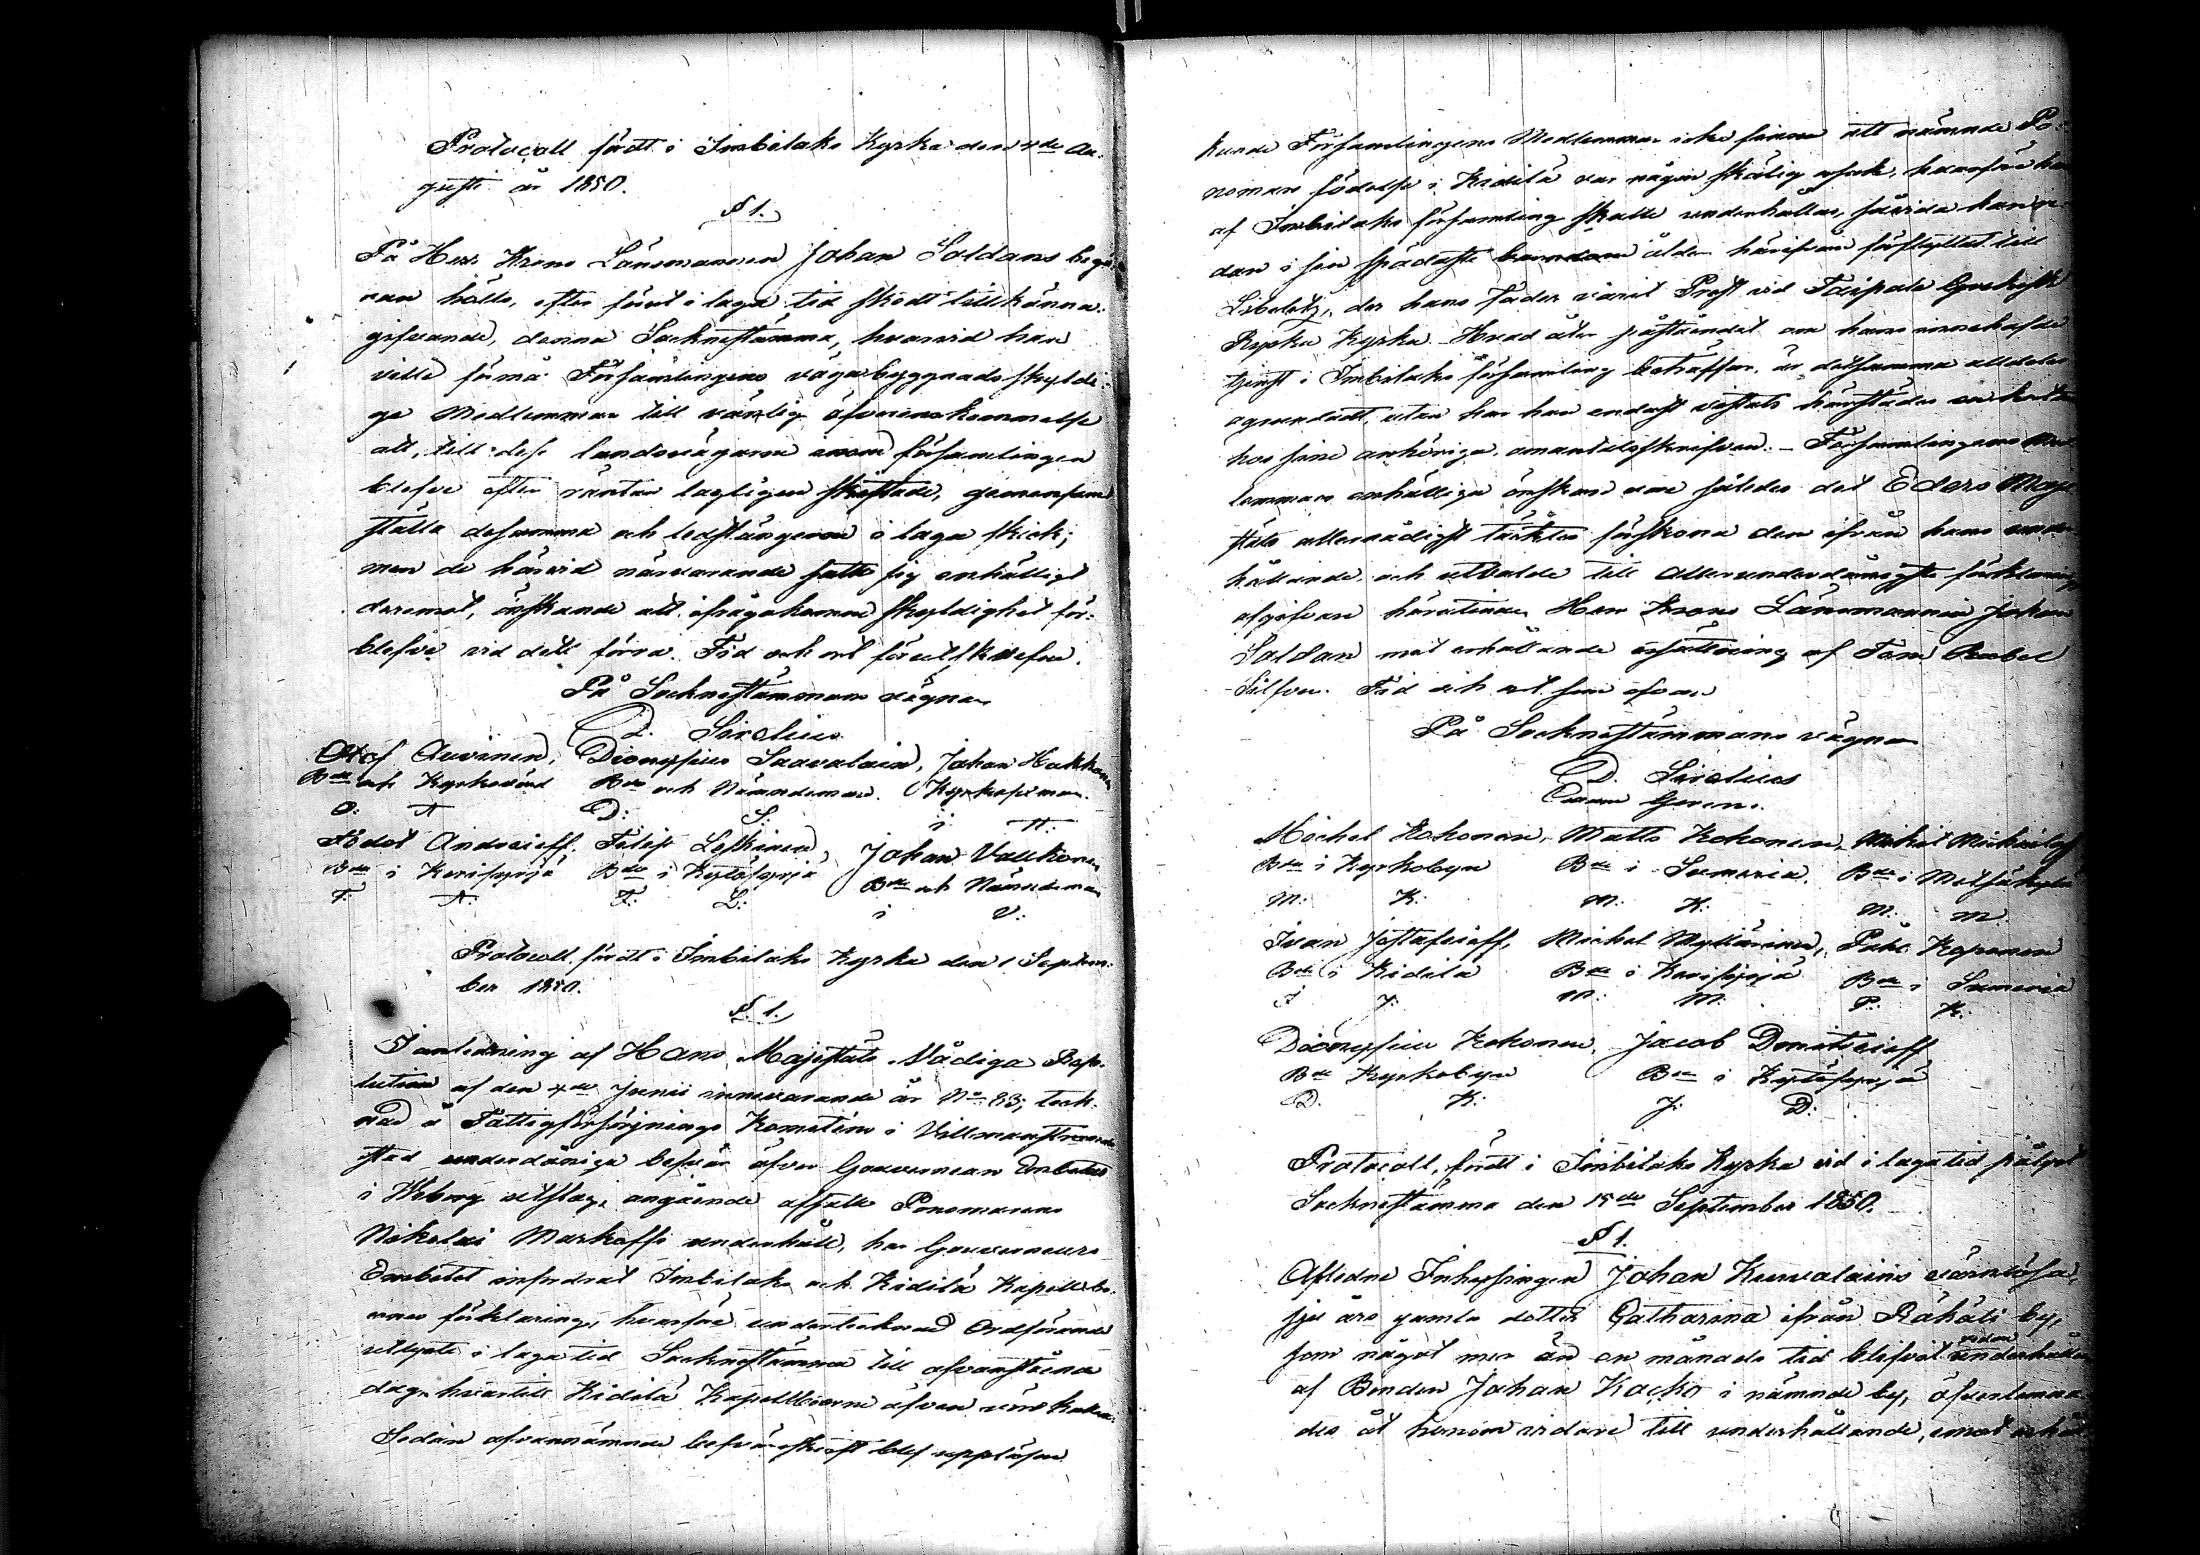 Protocoll fördt i Imbilaks Kyrka den 4de Au-
gusti år 1850.
§ 1.
På Herr Krono Länsmannen Johan Soldans begä-
ran hölls, efter förut i laga tid skedt tillkänna-
gifvande, denna Socknestämma, hvarvid han
ville förmå Församlingens vägabyggnads skyldi-
ge Medlemmar till vänlig öfverenskommelse
att, till dess landsvägarne inom församlingen
blefve efter räntan lagligen skiftade, gemensamt
ställa desamma och ledstängerna i laga skick;
men de härvid närvarande satte sig enhälligt
deremot, önskande att ifrågakomne skyldighet för-
blefve vid dett förra. Tid och ort förutskrefne.
På Socknestämmans vägnar
D. Sirelius
Olof Auvinen, Dionysius Saavalain, Johan Hakkanen
Bde och Kyrkovärd Bde och Nämndeman. Kyrkosexman.
O: A D: S: i H:
Födot Andreieff. Filip Leskinen, Johan Vallkonen
Bde i Kerisyrjä Bde i Kytösyrjä Bde och Nämndeman
F. A F: L: i V:
Protocoll, fördt i Imbilaks Kyrka den 1 Septem-
ber 1850.
§ 1.
I anledning af Hans Majestäts Nådiga Reso-
lution af den 4de Junii innevarande år No 83, teck-
nad å Fattigförsörjnings Kometéns i Villmanstrands
stad underdåniga besvär öfver Gouverneurs Embetets
i Wiborg utslag, angående afsatte Ponomarens
Nikolai Markoffs underhåll, har Gouverneurs
Embetet infordrat Imbilaks och Kidilä Kapellbo-
ernes förklaring, hvarföre undertecknad Ordförande
utlyste i laga tid Socknestämma till ofvanstående
dag, hvartill Kidilä Kapellboerne äfven voro kallade.
Sedan ofvannämnde besvärsskrift blef uppläsen
kunde Församlingens Medlemmar icke finna att nämnde Po-
nomars födelse i Kidilä var någon skälig orsak, hvarföre han
af Imbilaks församling skulle underhållas, såvida han re-
dan i sin spädaste barndom ålder härifrån förflyttat till
Libelitz, der hans fader varit Prest vid Taipale Grekisk
Ryska Kyrka. Hvad åter påståendet om hans innehafde
tjenst i Imbilaks församling beträffar, är detsamma alldeles
ogrundadt, utan har han endast vistats härstädes en kort tid
hos sine anhöriga omantalsskrifven. - Församlingens Med-
lemmars enhälliga önskan var således det Eders Maje-
stäts allernådigst täcktes förskona dem ifrån hans under-
hållande och utvalde till allerunderdånigste förklarings
afgifvare häröfver Herr Krono Länsmannen Johan
Soldan mot erhållande ersättning af Fem Rubel
Silfver. Tid och ort som ofvan
På Socknestämmans vägnar
D. Sirelius
Michel Kokonen, Matts Kokonen, Mikit Michailoff
Bde i Kyrkobyn Bde i Sumeria. Bde i Metsäkylä
M: K: M: K: M: M:
Ivan Jestafeieff, Michel Myllärinen, Påhl Koponen
Bde i Kidilä Bde i Kerisyrjä Bde i Sumeria
I J: M: M: P: K:
Dionysius Kokonen, Jacob Demitrieff
Bde Kyrkobyn Bde i Kytösyrjä
D. K: J: D:
Protocoll, fördt i Imbilaks Kyrka vid i laga tid pålyst
Socknestämma den 15de September 1850.
§ 1.
Afledne Inhysingen Johan Kurvalains värnlösa,
sju års gamla dotter Catharina ifrån Räkäli by,
som något mer än en månads tid blifvit redan underhållen
af Bonden Johan Kacko i nämnde by, öfverlemna-
des åt honom vidare till underhållande, emot erhål-